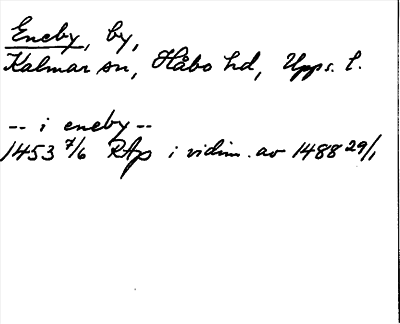 Eneby, by,
Kalmar sn, Håbo hd, Upps. l.
-- i eneby --
1453 7/6 RAp i vidim. av 1488 29/1